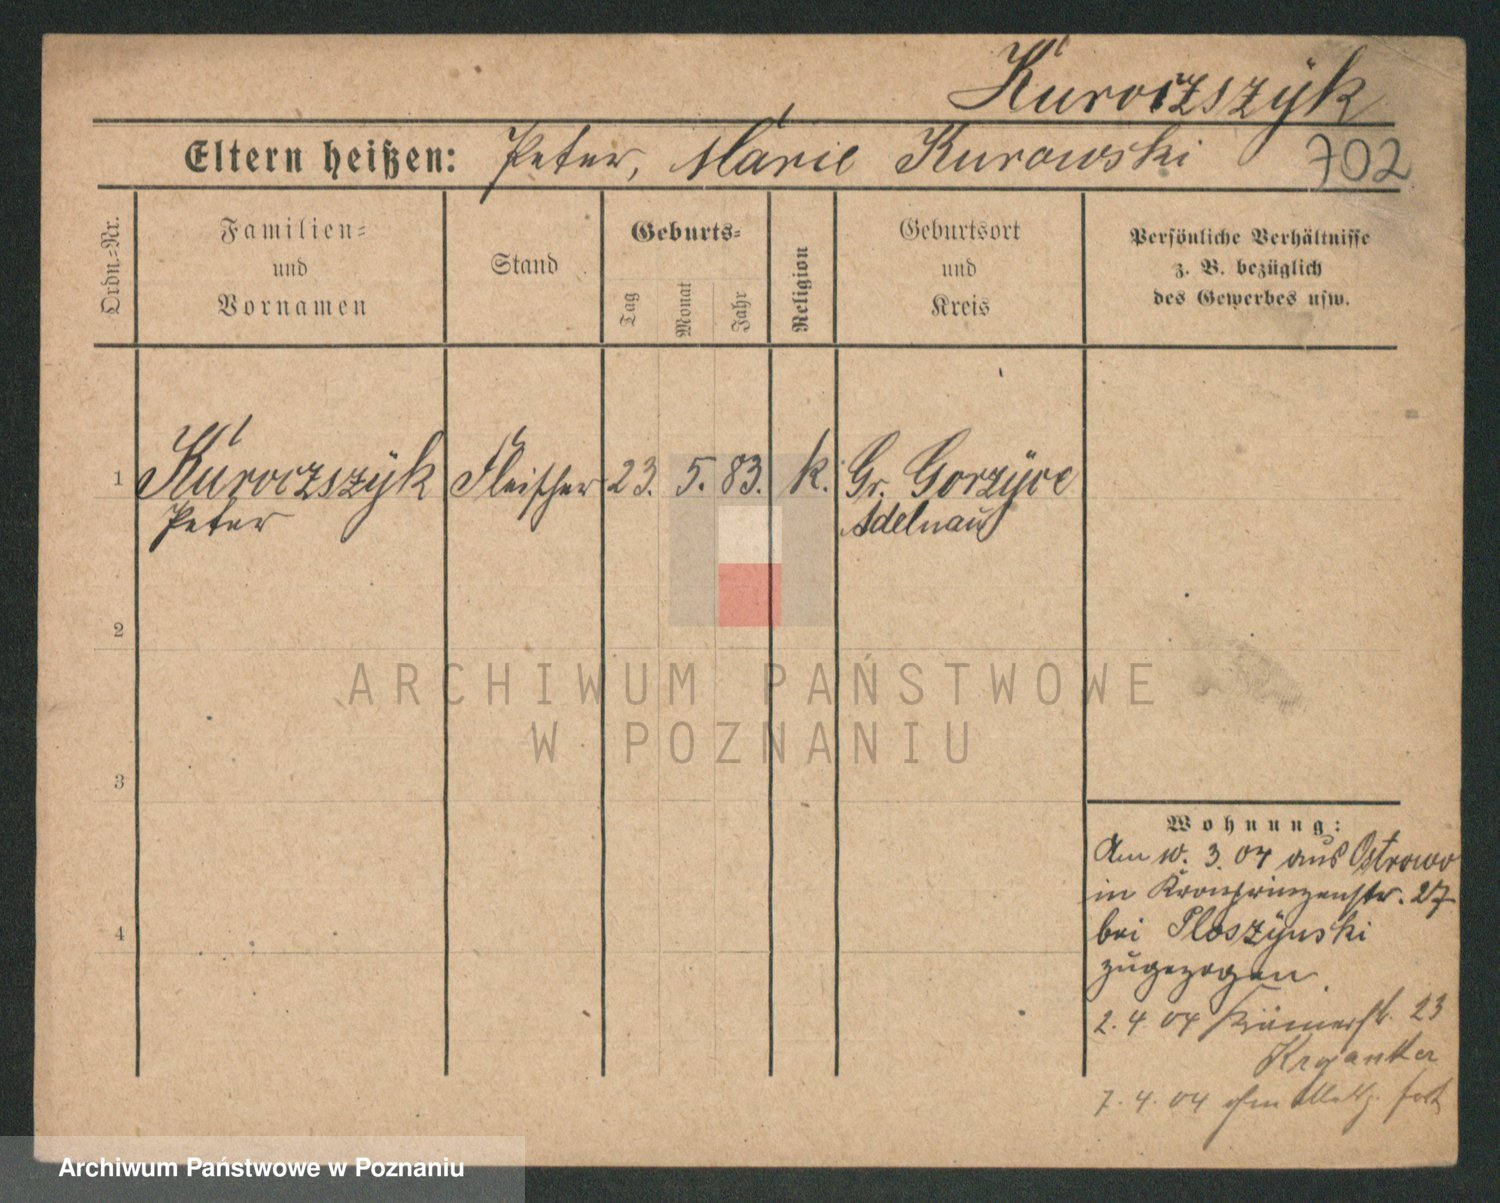 Kuroczszÿk
Eltern heißen: Peter, Marie Kurowski 702
Ordn.=Nr.
Familien=
und
Vornamen
Stand
Geburts=
Tag
Monat
Jahr
Religion
Geburtsort
und
Kreis
Persönliche Verhältnisse
z. B. bezüglich
des Gewerbes usw.
1 Kuroczszÿk Fleischer 23. 5. 83. k. Gr. Gorzÿce
Peter Adelnau
2
3
4
ARCHIWUM PAŃSTWOWE
W POZNANIU
Wohnung:
Am 10. 3. 04 aus Ostrowo
in Kronprinzenstr. 27
bei Ploszÿnski
zugezogen.
2. 4. 04 Krämerstr. 23
7. 4. 04
Archiwum Państwowe w Poznaniu